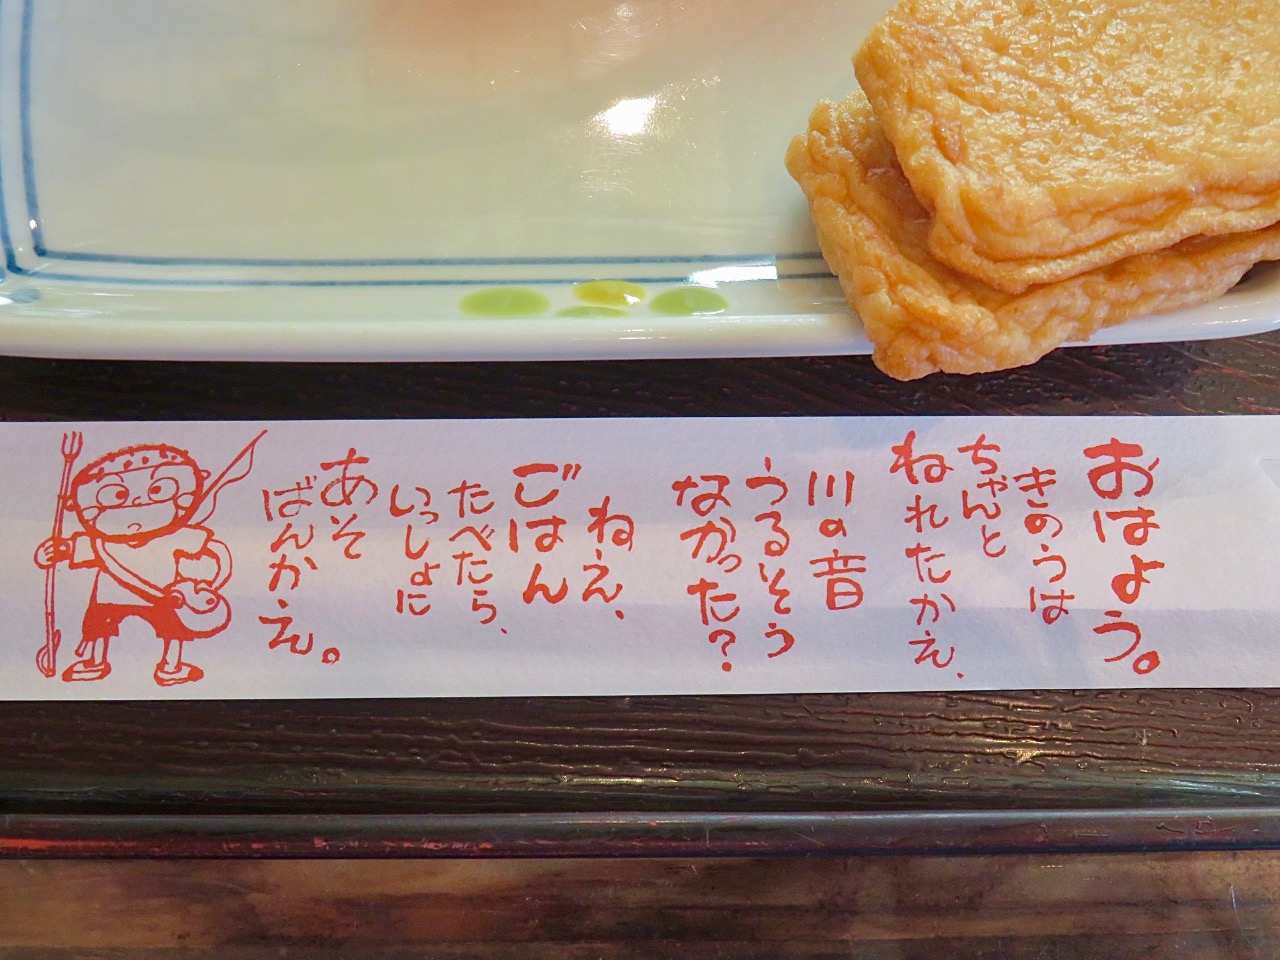 おはよう。
きのうは
ちゃんと
ねれたかえ、
川の音
うるいそう
なかった？
ねえ、
ごはん
たべたら、
いっしょに
あそ
ばんかえ。